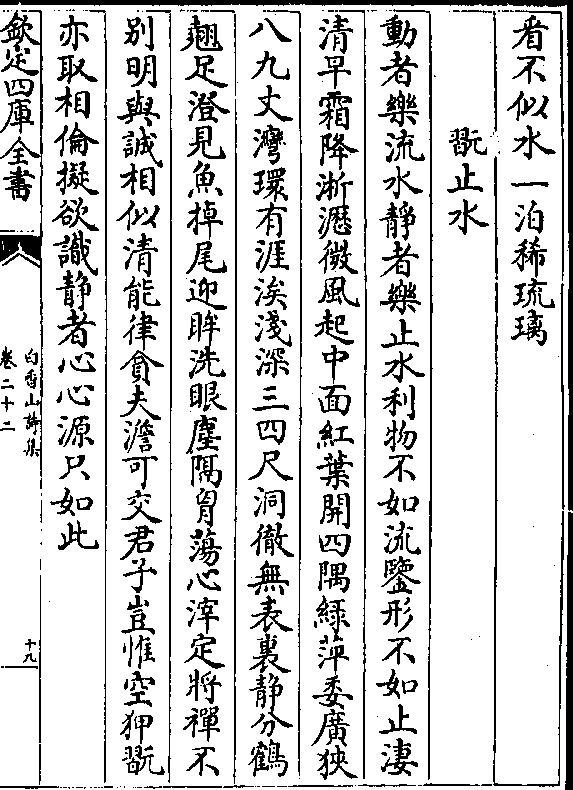 看不似水一泊稀琉璃
翫止水
動者樂流水靜者樂止水利物不如流鑒形不如止淒
清早霜降淅瀝微風起中面紅葉開四隅緑萍委廣狹
八九丈灣環有涯涘淺深三四尺洞徹無表裏静分鶴
翹足澄見魚掉尾迎眸洗眼塵隔胷蕩心滓定將禪不
别明與誠相似清能律貪夫澹可交君子豈惟空狎翫
亦取相倫擬欲識静者心心源只如此
欽定四庫全書
白香山詩集
卷二十二
十九